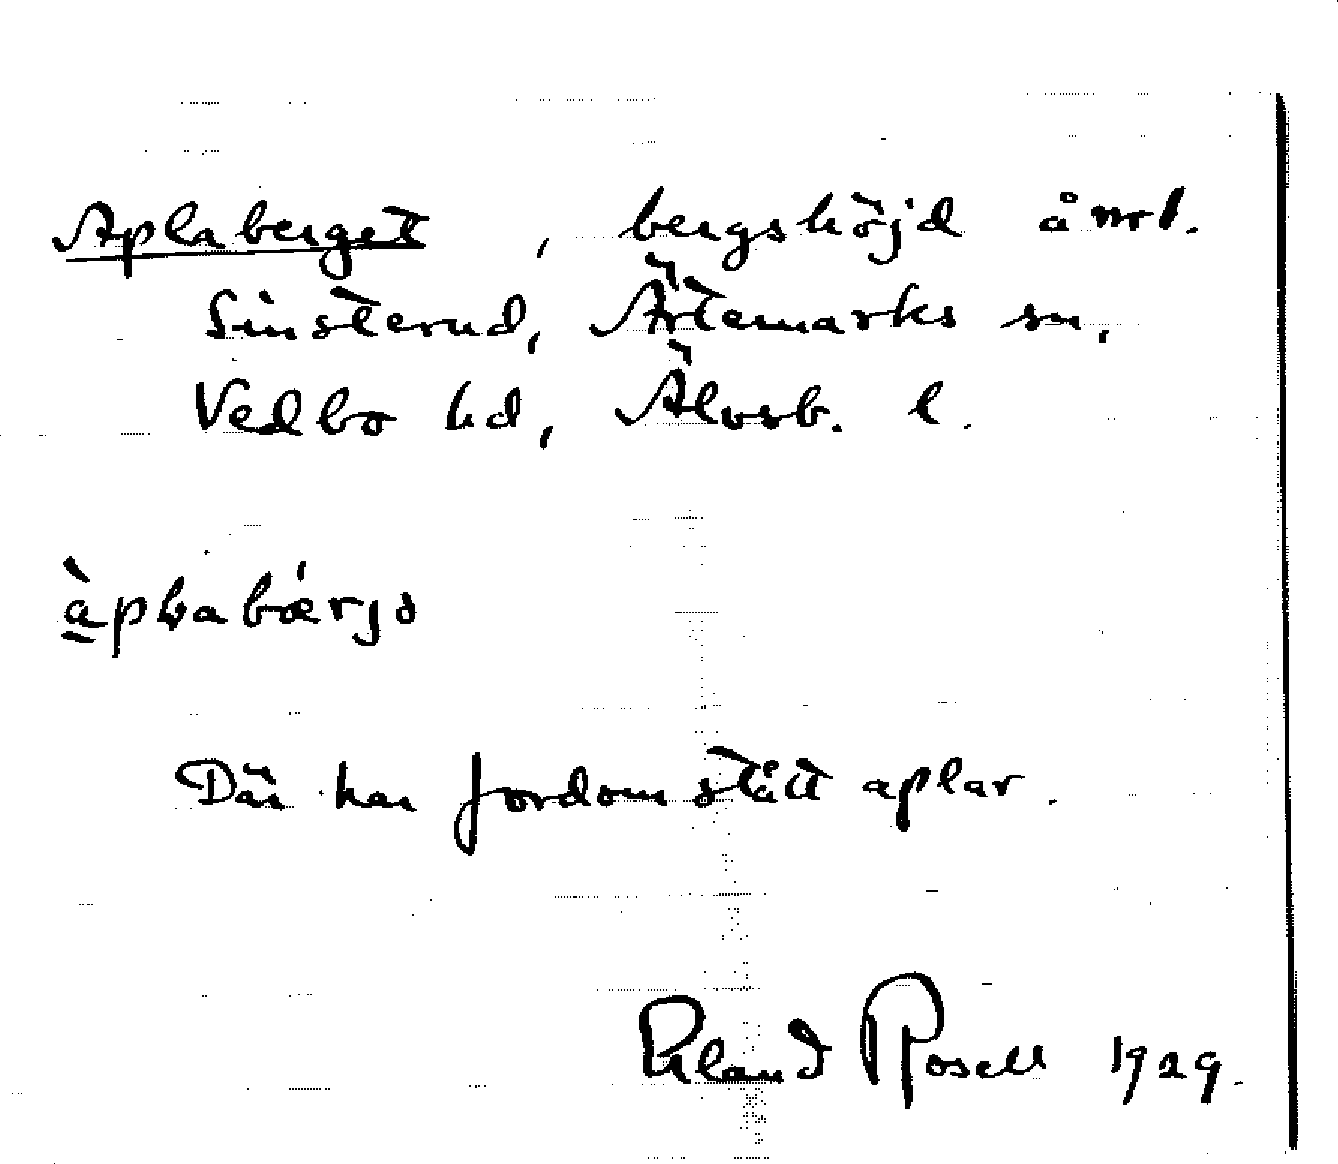 Aplaberget, bergshöjd å nr 1.
Sinsterud, Ärtemarks sn,
Vedbo hd, Älvsb. l.
Där har fordom stått aplar.
Erland Rosell 1929.